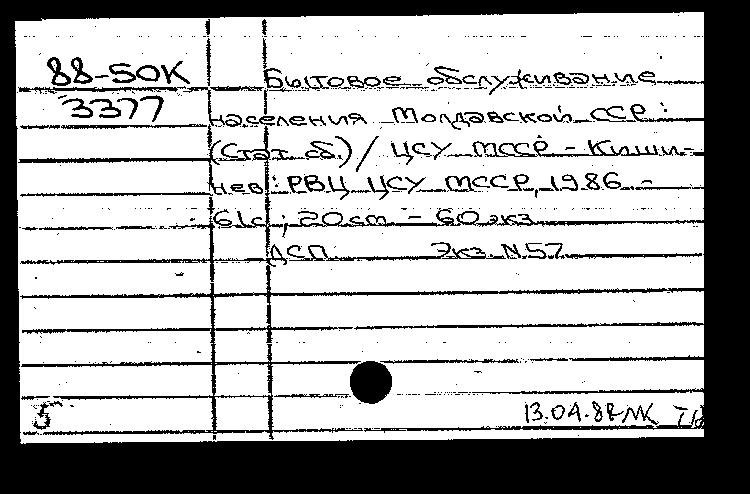 88-50К
3377
Бытовое обслуживание
населения Молдавской ССР:
(Стат. сб.) / ЦСУ МССР - Киши-
нев: РВЦ ЦСУ МССР, 1986 -
61с; 20cm - 60 экз
ДСП. Экз. N57
5
13.04.88